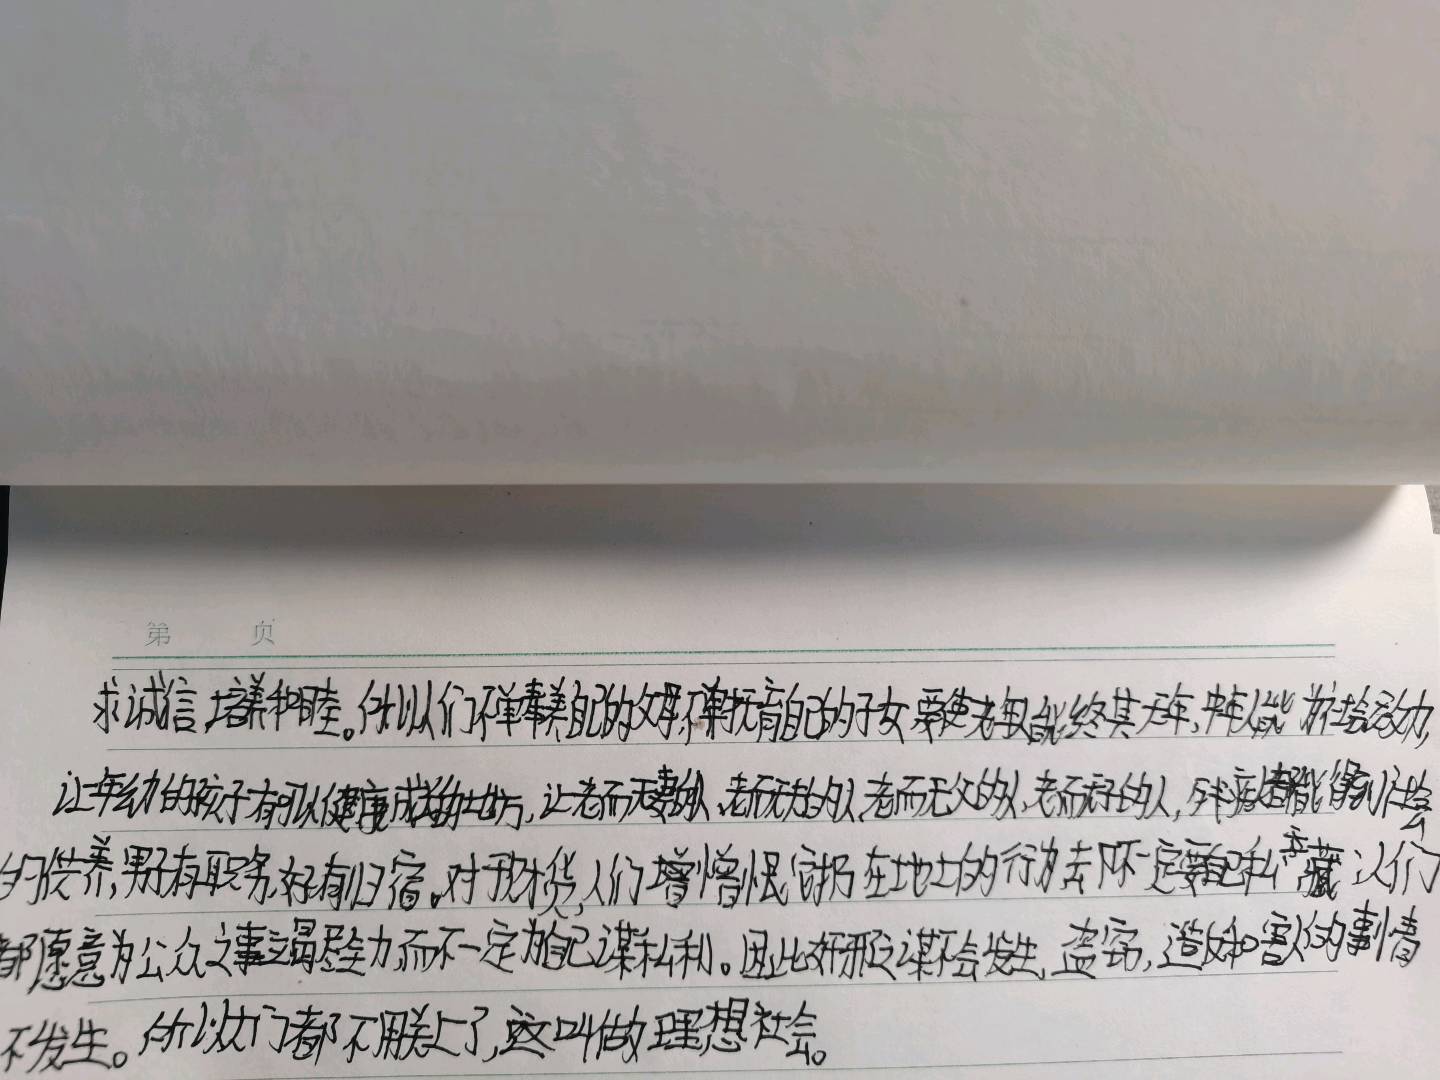 第 页
求诚信,培养和睦。所以人们不单奉养自己的父母,不单抚育自己的子女,要使老年人能终其天年,中年人能为社会效力,
让年幼的孩子有可以健康成长的地方,让老而无妻的人、老而无夫的人、老而无父的人、老而无子的人,残疾人都能得到社会
的供养,男子有职务,女子有归宿。对于财货,人们憎恨它扔在地上的行为,去不一定要自己私藏;人们
都愿意为公众之事竭尽全力,而不一定为自己谋私利。因此奸邪之谋不会发生,盗窃,造反和害人的事情
不发生。所以大门都不用关上了,这叫做理想社会。